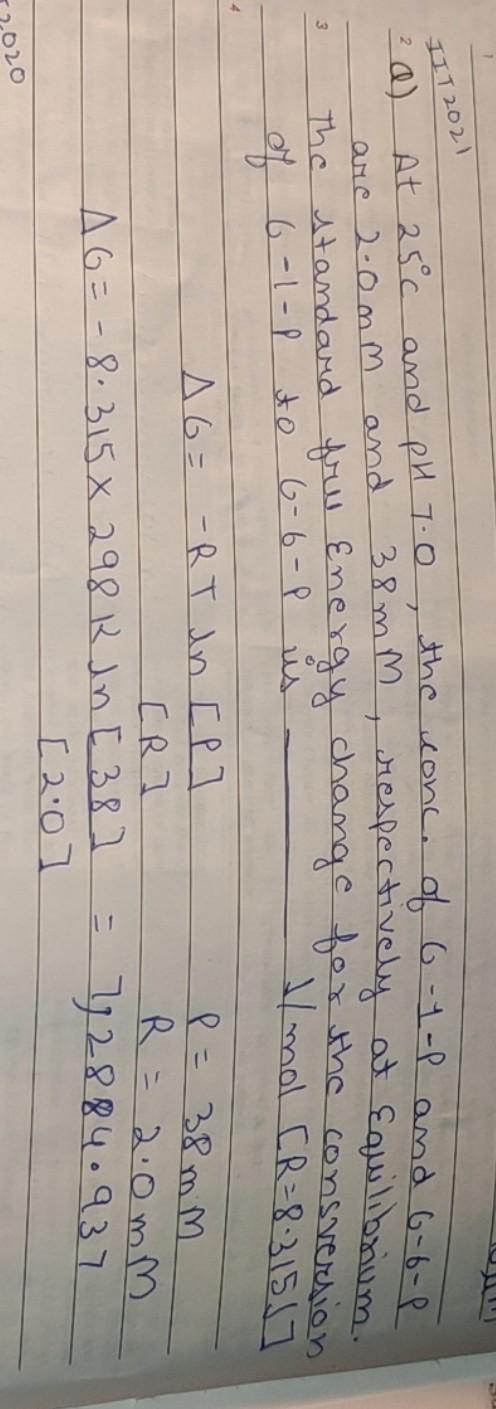 IIT2021
2 Q) At 25°C and pH 7.0, the conc. of G-1-P and G-6-P
are 2.0mM and 38mM, respectively at Equilibrium.
3 The standard free Energy change for the consversion
of G-1-P to G-6-P is ______ J/mol [R=8.315J]
4
ΔG = -RT ln [P] P = 38mM
[R] R = 2.0mM
ΔG = -8.315 × 298K ln [38] = 7,2884.937
[2.0]
2020